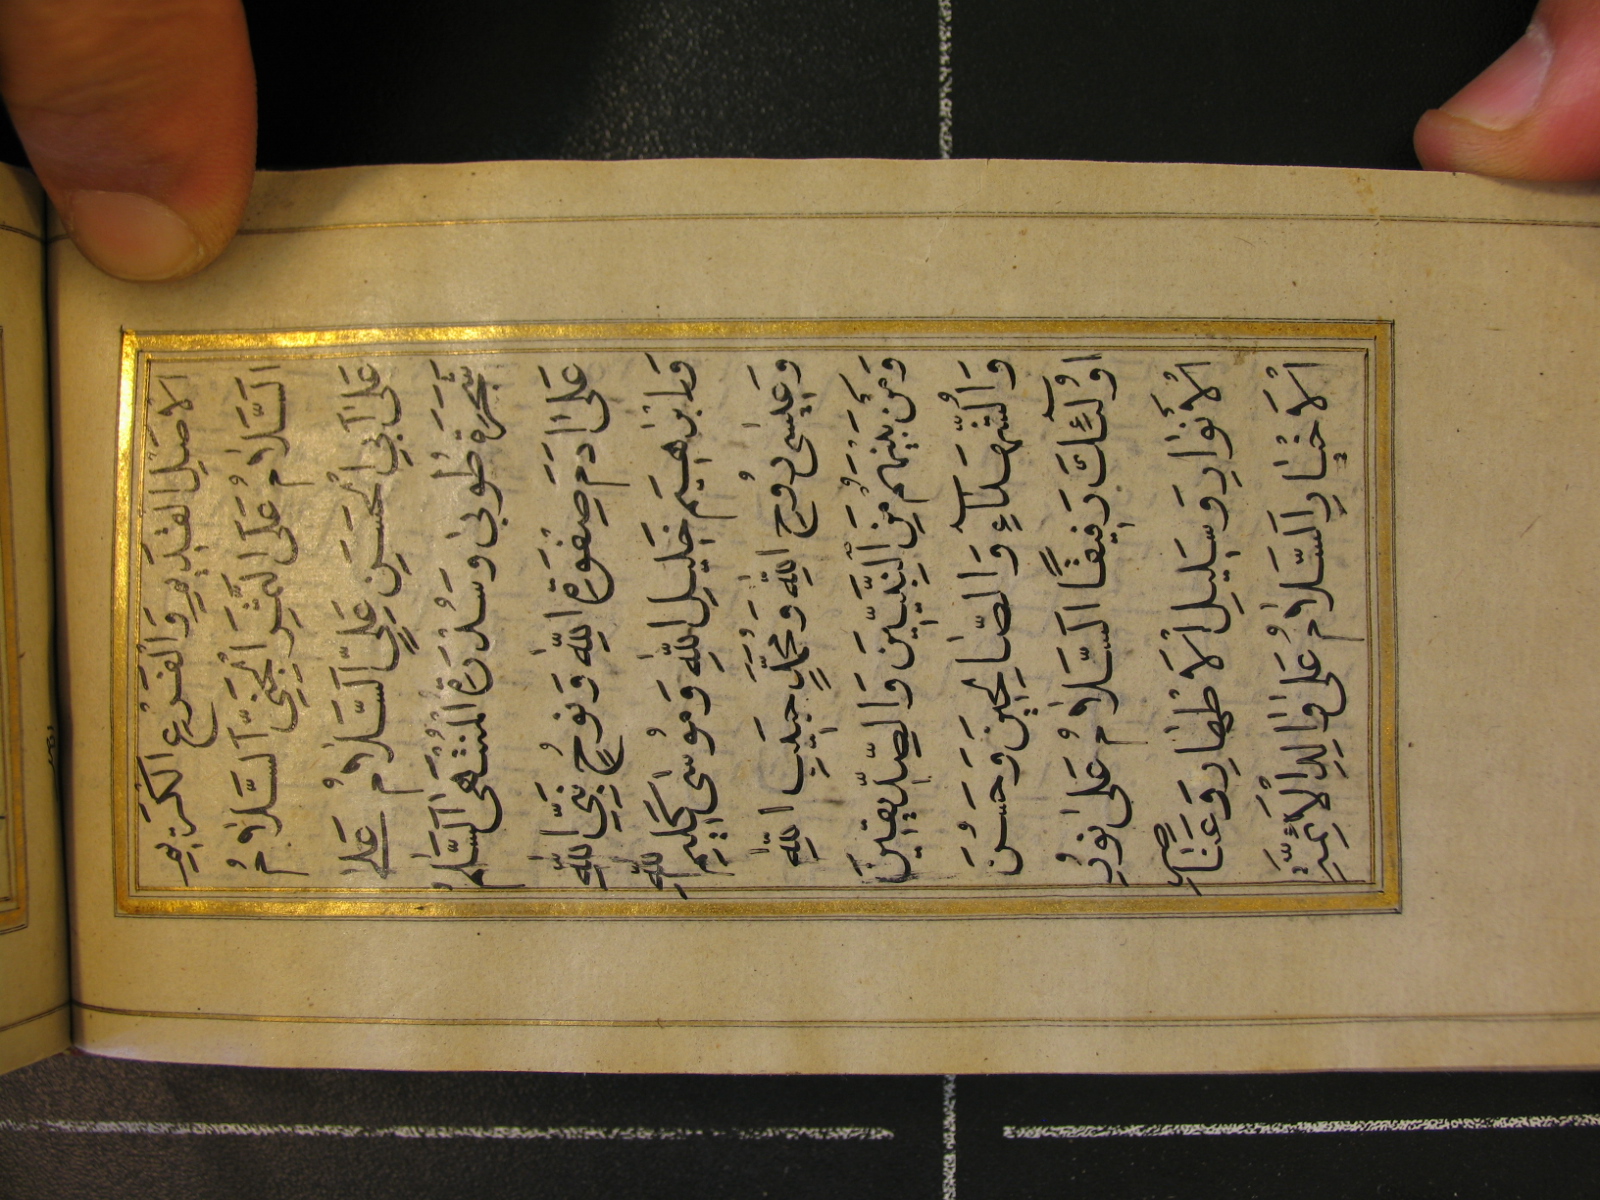 الْاَصِيلِ الْقَدِيمِ وَالْفَرْعِ الْكَرِيمِ
اَلسَّلَامُ عَلَى الثَّمَرِ الْجَنِيِّ اَلسَّلَامُ
عَلَى اَبِي الْحَسَنِ عَلِيٍّ اَلسَّلَامُ عَلٰى
شَجَرَةِ طُوبٰى وَسِدْرَةِ الْمُنْتَهٰى اَلسَّلَامُ
عَلٰى اٰدَمَ صِفْوَةِ اللّٰهِ وَنُوحٍ نَبِيِّ اللّٰهِ
وَاِبْرٰهِيمَ خَلِيلِ اللّٰهِ وَمُوسٰى كَلِيمِ اللّٰهِ
وَعِيسٰى رُوحِ اللّٰهِ وَمُحَمَّدٍ حَبِيبِ اللّٰهِ
وَمَنْ بَيْنَهُمْ مِنَ النَّبِيِّينَ وَالصِّدِّيقِينَ
وَالشُّهَدَاءِ وَالصَّالِحِينَ وَحَسُنَ
اُولٰئِكَ رَفِيقًا اَلسَّلَامُ عَلٰى نُورِ
الْاَنْوَارِ وَسَلِيلِ الْاَطْهَارِ وَعَنَاصِرِ
الْاَخْيَارِ اَلسَّلَامُ عَلٰى وَالِدِ الْاَئِمَّةِ